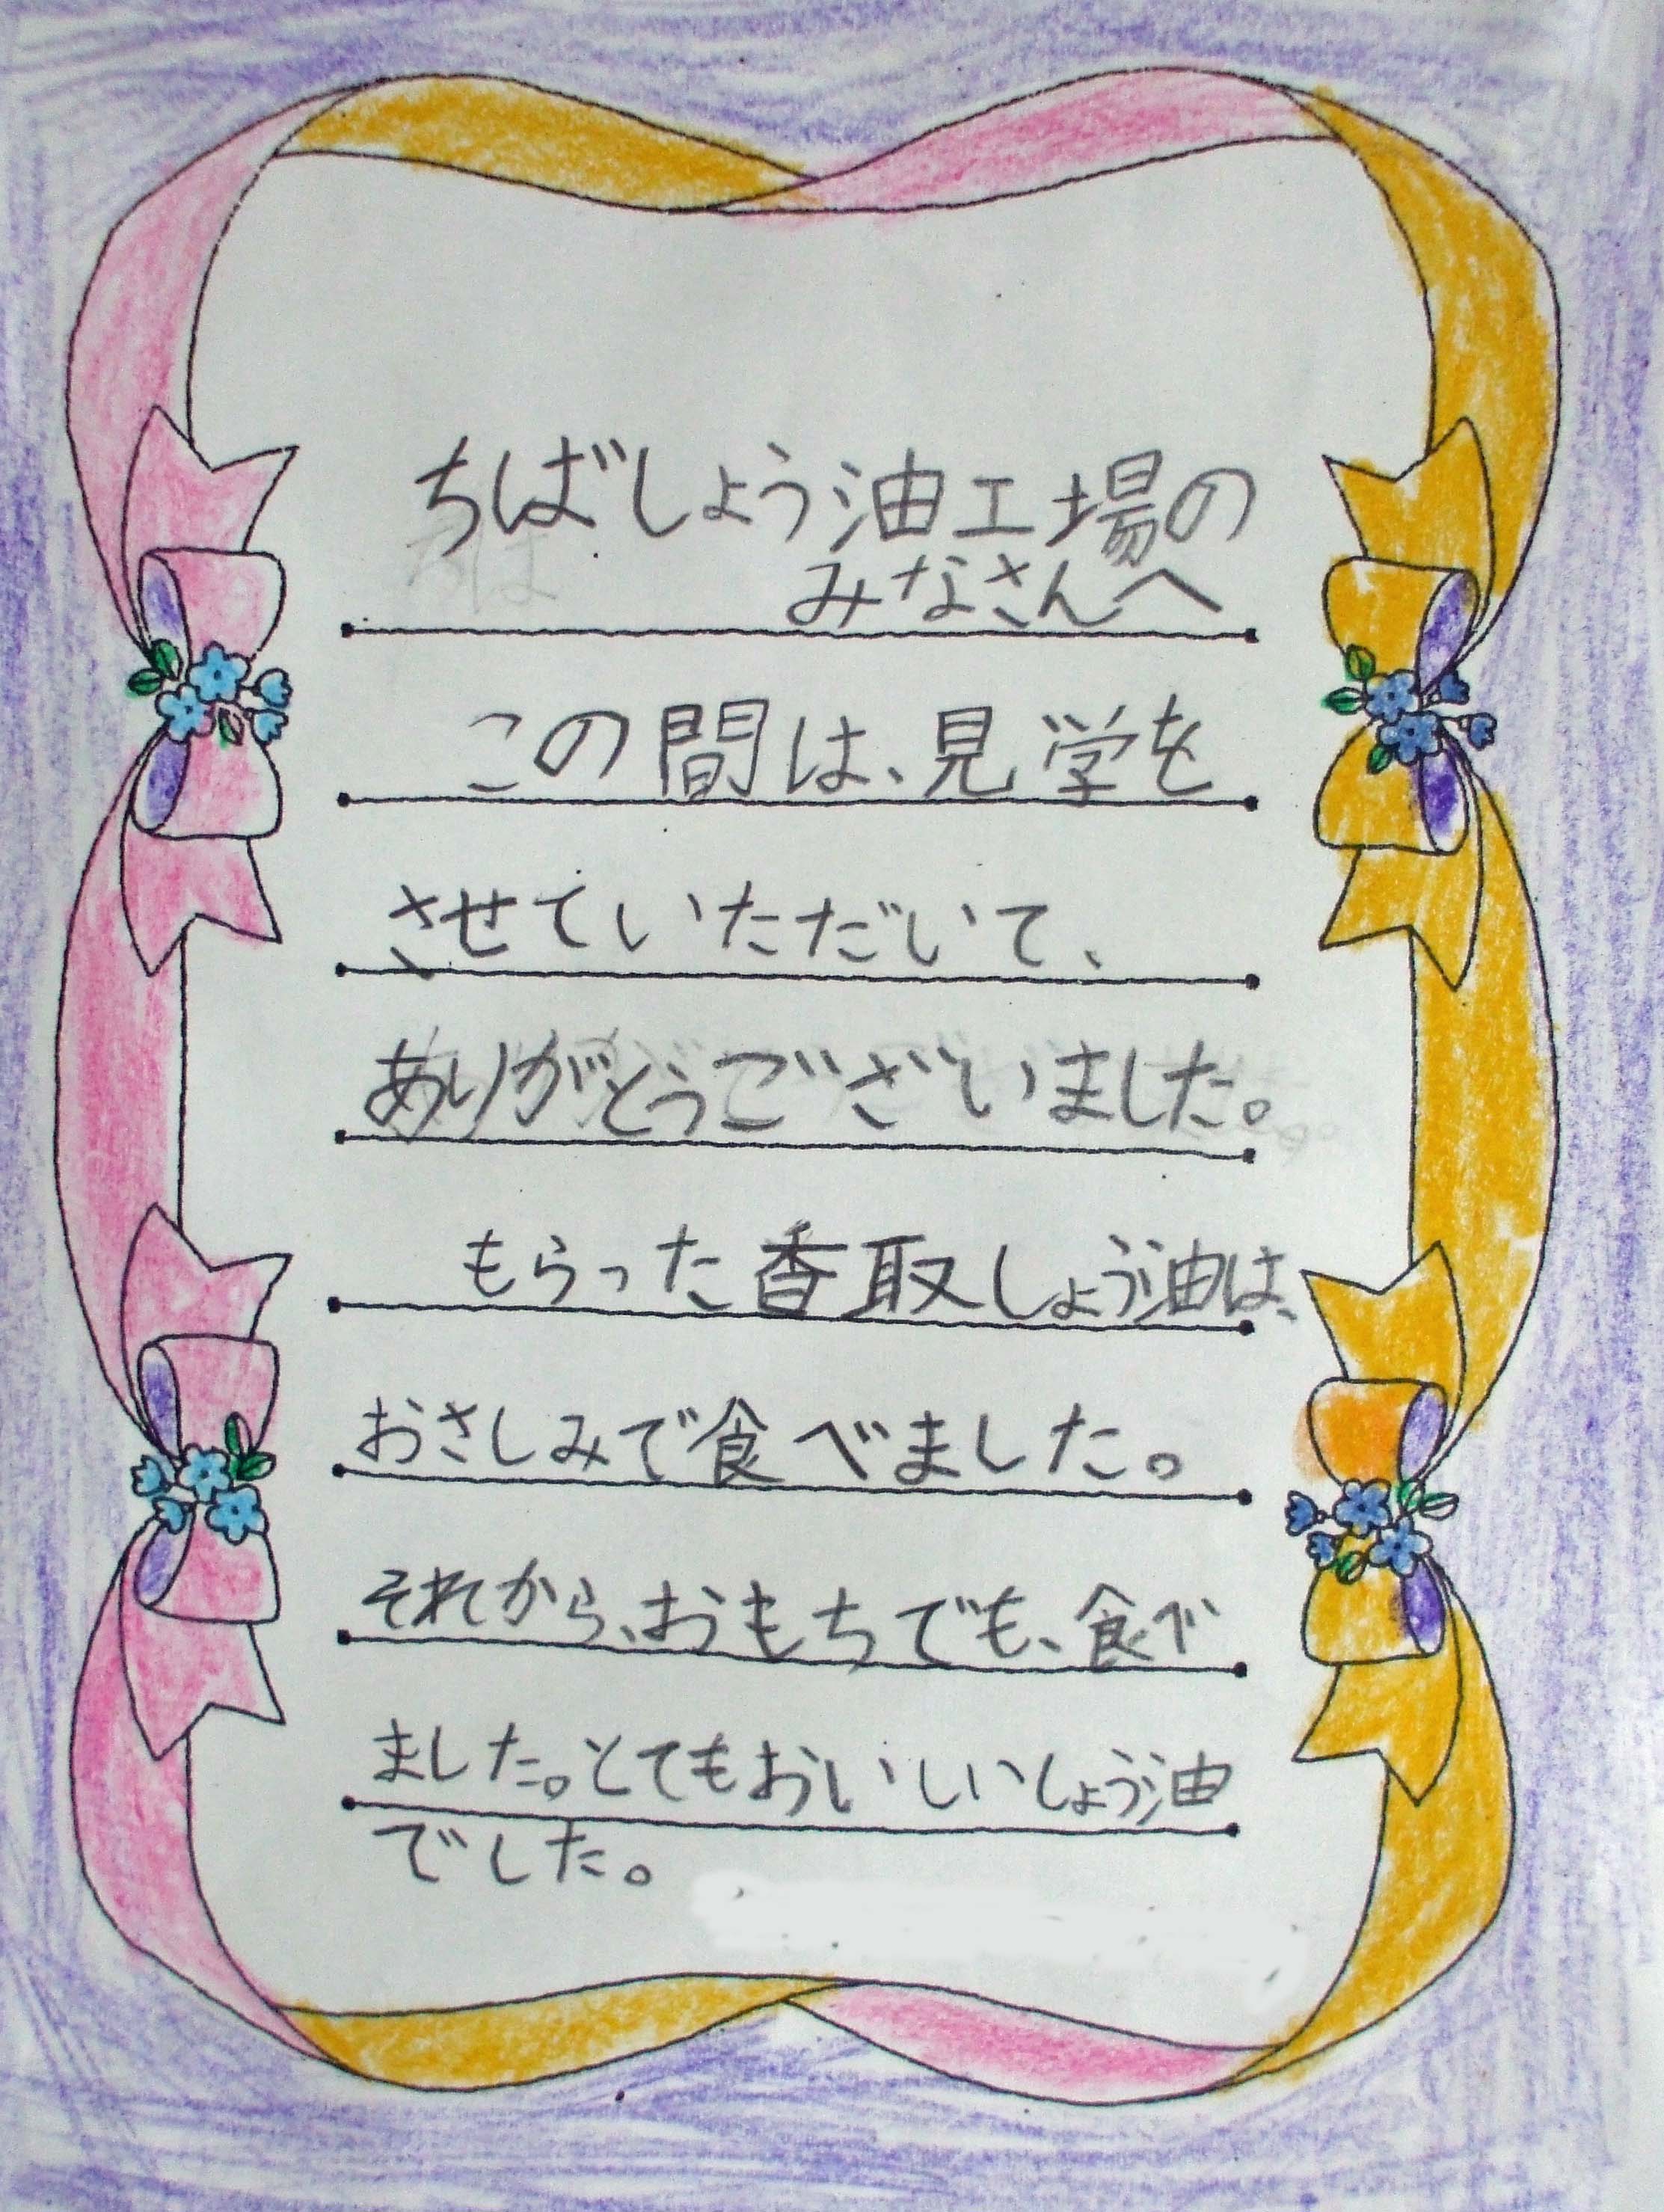 ちばしょう油工場の
みなさんへ
この間は、見学を
させていただいて、
ありがとうございました。
もらった香取しょう油は、
おさしみで食べました。
それから、おもちでも、食べ
ました。とてもおいしいしょう油
でした。